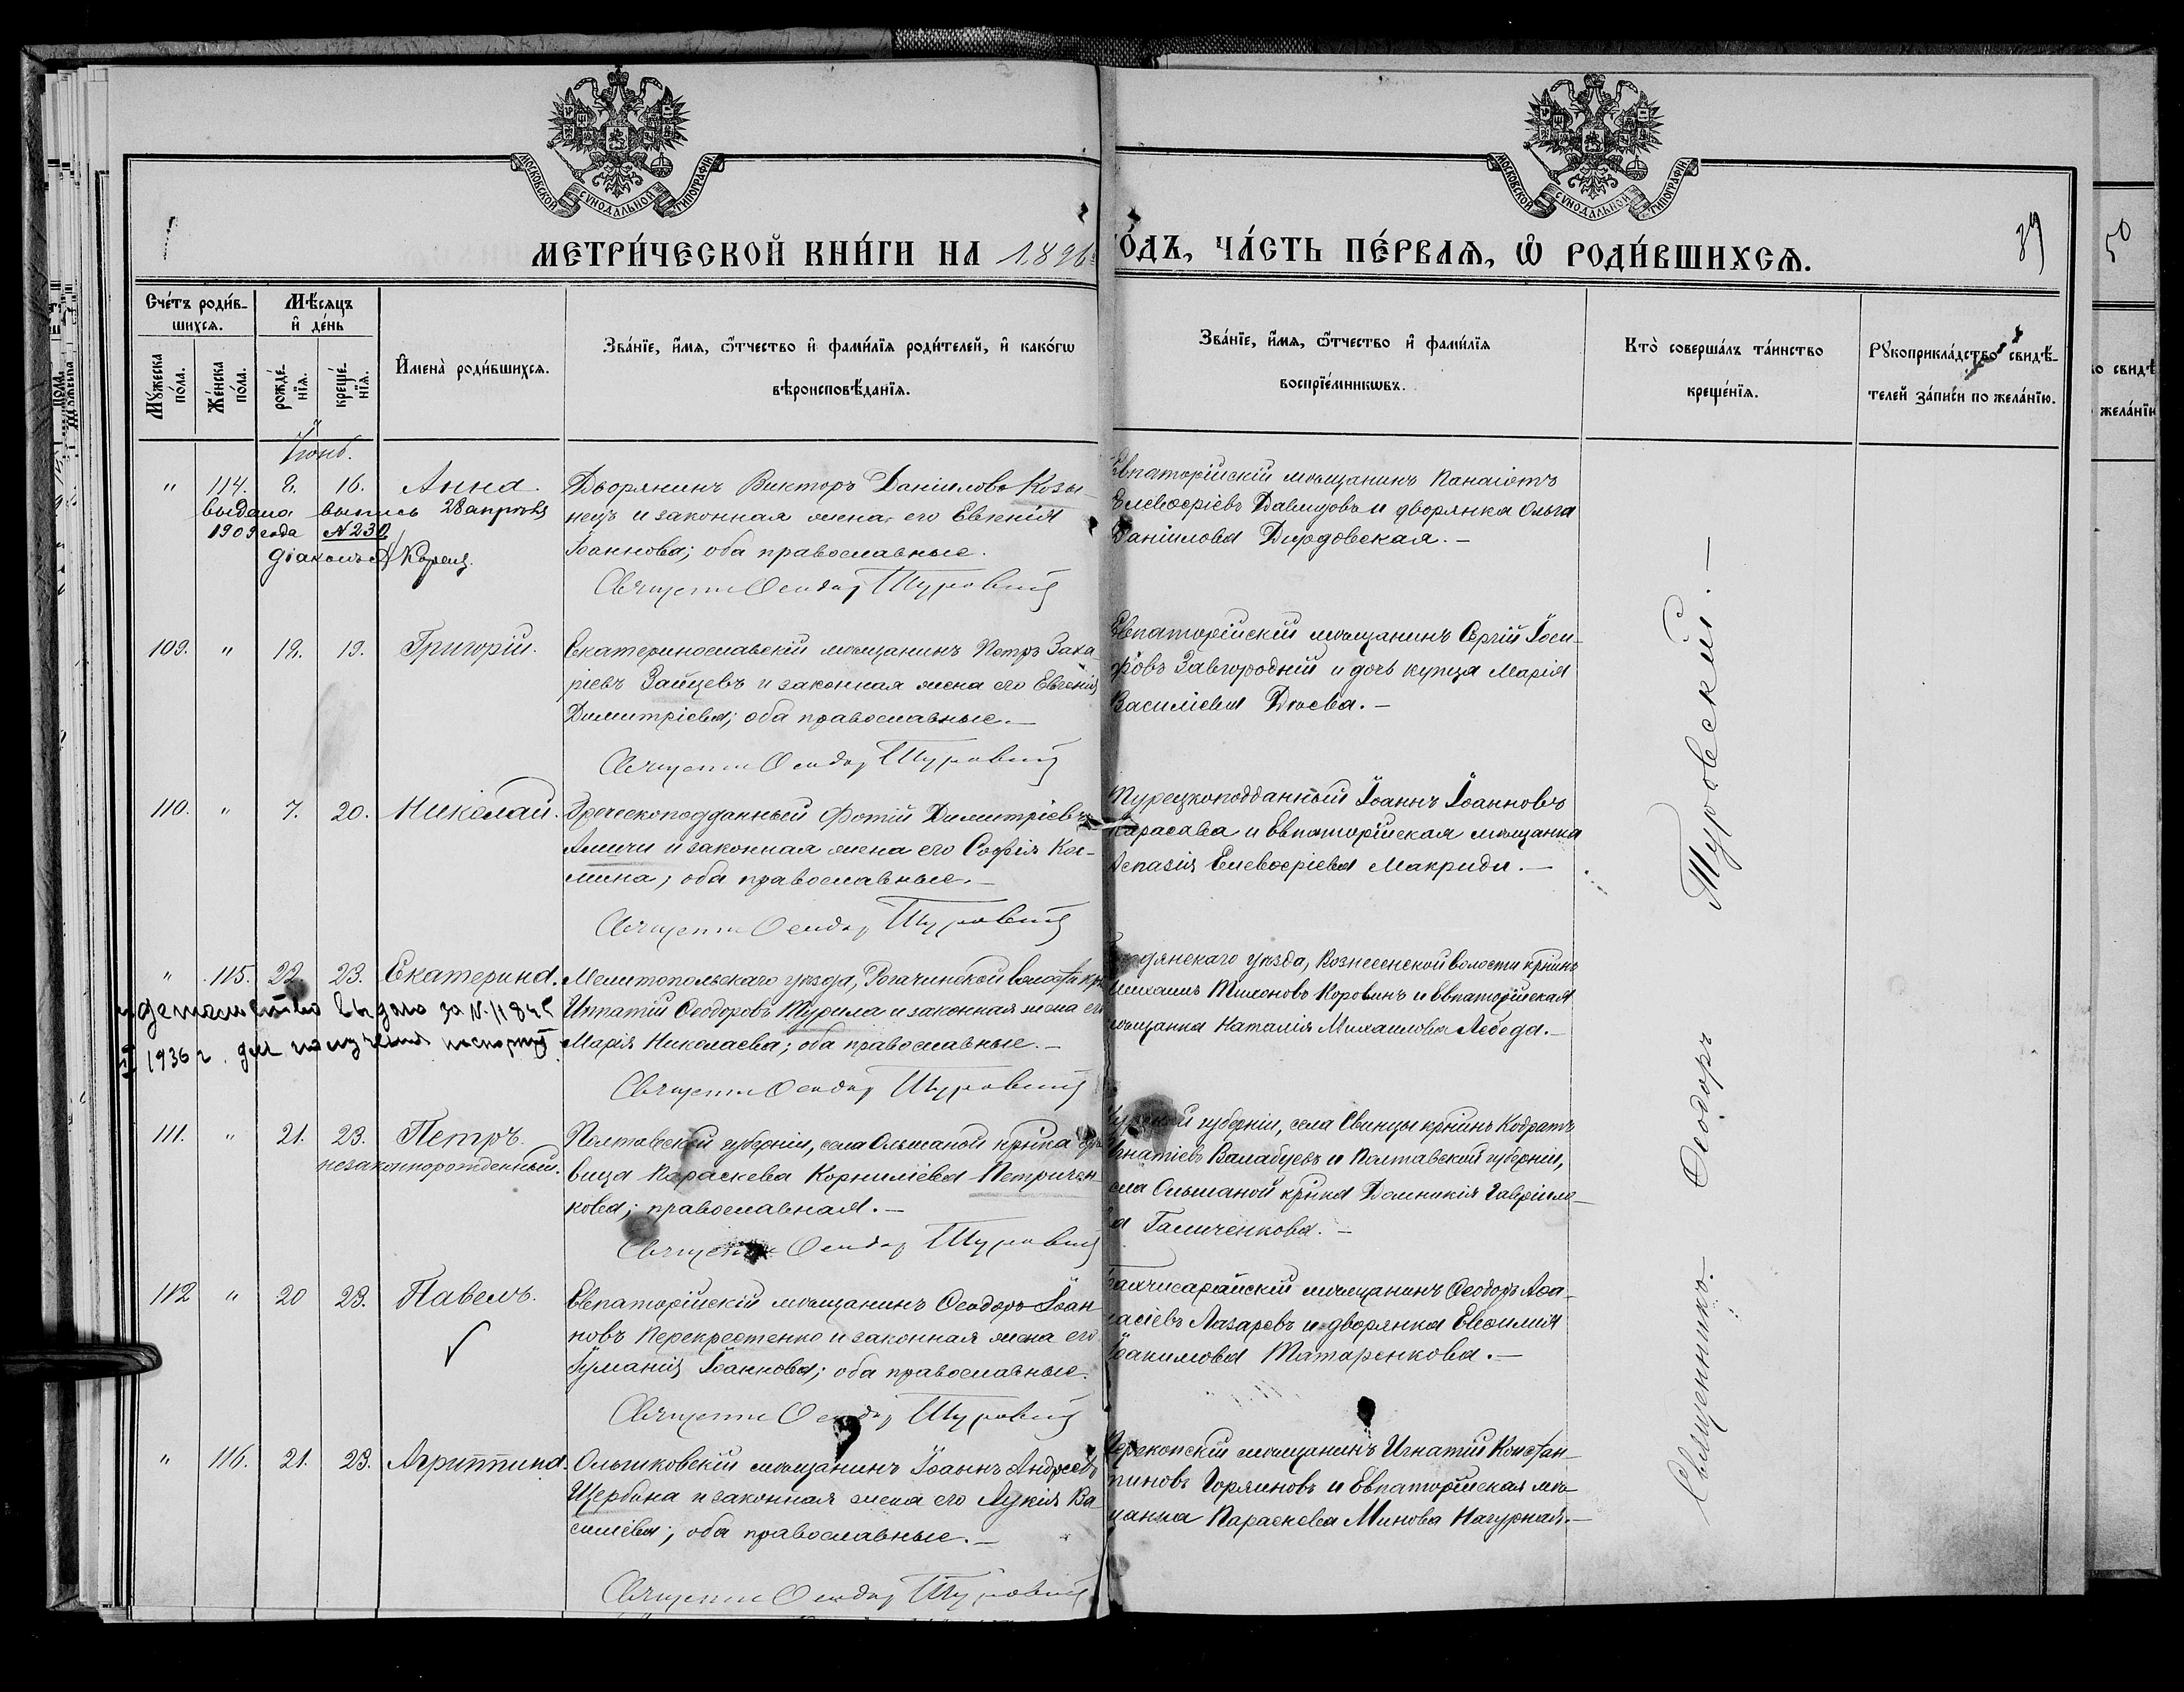 МОСКОВСКОЙ СѴНОДАЛЬНОЙ ТИПОГРАФІИ
МОСКОВСКОЙ СѴНОДАЛЬНОЙ ТИПОГРАФІИ
МЕТРИ́ЧЕСКОЙ КНИ́ГИ НА 1896 ГО́ДЪ, ЧА́СТЬ ПЕ́РВАѦ, Ѡ РОДИ́ВШИХСѦ.
50
Сче́тъ роди́в-
шихсѧ.
Мѣ́сяцъ
и҆ де́нь
Мꙋ́жеска
по́ла.
Же́нска
по́ла.
рожде́-
нїѧ.
креще́-
нїѧ.
И҆мена̀ роди́вшихсѧ.
Зва́нїе, и҆́мѧ, ѻ҆́тчество и҆ фами́лїѧ роди́телей, и҆ како́гѡ
вѣроисповѣ́данїѧ.
Зва́нїе, и҆́мѧ, ѻ҆́тчество и҆ фами́лїѧ
воспрїе́мникѡвъ.
Кто̀ соверша́лъ та́инство
креще́нїѧ.
Рꙋкоприкла́дство свидѣ́-
телей за́писи по жела́нїю.
Іюнь.
" 114. 8. 16. Анна.
выдана выпись 28 апрѣля
1909 года N 230
діаконъ Корец
Дворянинъ Викторъ Даніиловъ Козы-
нецъ и законная жена его Евгенія
Іоаннова; оба православные.
Священн Ѳеодор Туровскій
Евпаторійскій мѣщанинъ Панаіотъ
Елевѳеріевъ Давыдовъ и дворянка Ольга
Даніилова Дырдовская. –
109. " 18. 19. Григорій.
Екатеринославскій мѣщанинъ Петръ Заха-
ріевъ Зайцевъ и законная жена его Евгенія
Димитріева; оба православные. –
Священн Ѳеодор Туровскій
Евпаторійскій мѣщанинъ Сергій Іоси-
фовъ Завгородній и дочь купца Марія
Василіева Дюева. –
110. " 7. 20. Николай.
Греческоподданный Фотій Димитріевъ
Аличи и законная жена его Софія Кос-
мина; оба православные. –
Священн Ѳеодор Туровскій
Турецкоподданный Іоаннъ Іоанновъ
Карасава и Евпаторійская мѣщанка
Аспазія Елевѳеріева Макриди. –
" 115. 22. 23. Екатерина.
выдано за N 1184
1936 г. для получения паспорта
Мелитопольскаго уѣзда, Рогачинской волости кр
Игнатій Ѳеодоровъ Турила и законная жена его
Марія Николаева; оба православные. –
Священн Ѳеодор Туровскій
дянскаго уѣзда, Вознесенской волости крнинъ
Михаилъ Тихоновъ Коровинъ и Евпаторійская
мѣщанка Наталія Михаилова Лебеда. –
111. " 21. 23. Петръ.
незаконнорожденный.
Полтавской губерніи, села Ольшаной крнка дѣ-
вица Параскева Корниліева Петричен-
кова; православная. –
Священн Ѳеодор Туровскій
губерніи, села Свинцы крнинъ Кодратъ
Игнатіевъ Валабуевъ и Полтавской губерніи,
села Ольшаной крнка Домникія Гавріило-
ва Галиченкова. –
112 " 20 23. Павелъ.
Евпаторійскій мѣщанинъ Ѳеодоръ Іоан-
новъ Перекрестенко и законная жена его
Іуліанія Іоаннова; оба православные.
Священн Ѳеодор Туровскій
Бахчисарайскій мѣщанинъ Ѳеодоръ Аѳа-
насіевъ Лазаревъ и дворянка Евфимія
Іоакимова Татаренкова. –
" 116. 21. 23. Агриппина.
Олешковскій мѣщанинъ Іоаннъ Андреевъ
Щербина и законная жена его Лукія Ва-
силіева; оба православные. –
Священн Ѳеодор Туровскій
Перекопскій мѣщанинъ Игнатій Констан-
тиновъ Горяиновъ и Евпаторійская мѣ-
щанка Параскева Минова Нагурная. –
Священникъ Ѳеодоръ Туровскій. –